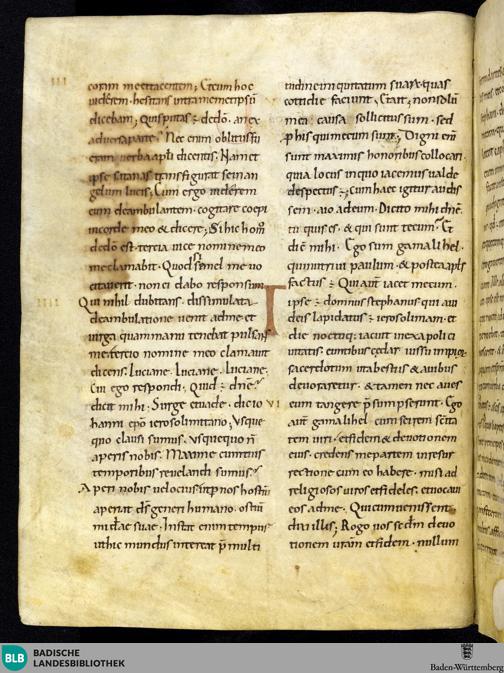 III
coram me et tacentem; Et cum hoc
viderem. hesitans intra memetipsū
dicebam; Quis putas ē dedō. an ex
adversa parte? Nec enim oblitus sū
etiam verba apłi dicentis. Nam et
ipse satanas transfigurat se in an
gelum lucis; Cum ergo viderem
eum deambulantem. cogitare coepi
in corde meo & dicere; Si hic homo
dedō est. tercia vice nomine meo
me clamabit. Quod si semel me vo
citaverit. non ei dabo responsum
IIII
Qui nihil dubitans. dissimulata
deambulatione venit ad me et
virga quam manu tenebat pulsans
me tertio nomine meo clamavit
dicens. Luciane. Luciane. Luciane.
Cui ego respondi. Quid ē dnē?
dicit mihi. Surge evade. dic io
hanni epō ierosolimitano. Usque
quo clausi sumus. usquequo ñ
aperis nobis. Maxime cum tuis
temporibus revelandi sumus?
Aperi nobis velocius ut p nos hostiū
aperiat ds generi humano. ostiū
misdae suae. Instat enim tempus
ut hic mundus intereat p multi
tudinem iniquitatum suarū quas
cottidie faciunt. Etait; non solū
mei causa sollicitus sum. sed
p his qui mecum sunt; Digni enī
sunt maximis honoribus collocari.
quia locus in quo iacemus valde
despectus ē; Cum haec igitur audis
sem. aio ad eum. Dicito mihi dnē.
tu quis es. & qui sunt tecum? Et
dix mihi. Ego sum gamalihel.
qui nutrivi paulum. & postea apłs
factus ē Qui autē iacet mecum.
ipse ē domnus stephanus qui a iu
deis lapidatus ē ierosolimam. et
die noctuq; iacuit in exapoli ci
vitatis. euntibus cedar. iussu impior
sacerdotum ut a bestiis & avibus
devoraretur. & tamen nec aves
VI
eum tangere p sumpserunt. Ego
autē gamalihel cum scirem scita
tem viri. et fidem & devotionem
eius. credens me partem in resur
rectione cum eo habere. misi ad
religiosos viros et fideles. et vocavi
eos ad me. Qui cum venissent
dixi illis; Rogo vos secdm devo
tionem vram et fidem. nullum
BLB
BADISCHE
LANDESBIBLIOTHEK
Baden-Württemberg